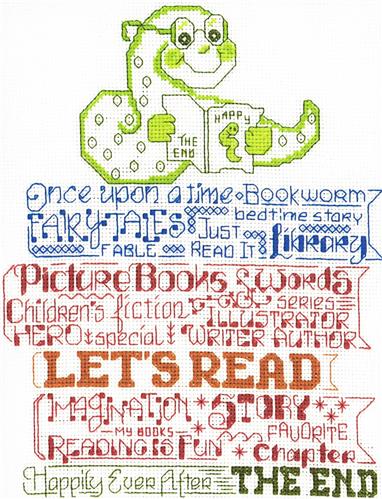 HAPPY
THE END
Once upon a time Bookworm
FAIRYTALES bedtime story
FABLE JUST READ IT LIBRARY
Picture Books & Words
Children's fiction series
ILLUSTRATOR
HERO special WRITER AUTHOR
LET'S READ
IMAGINATION STORY
MY BOOKS FAVORITE
READING IS FUN Chapter
Happily Ever After THE END